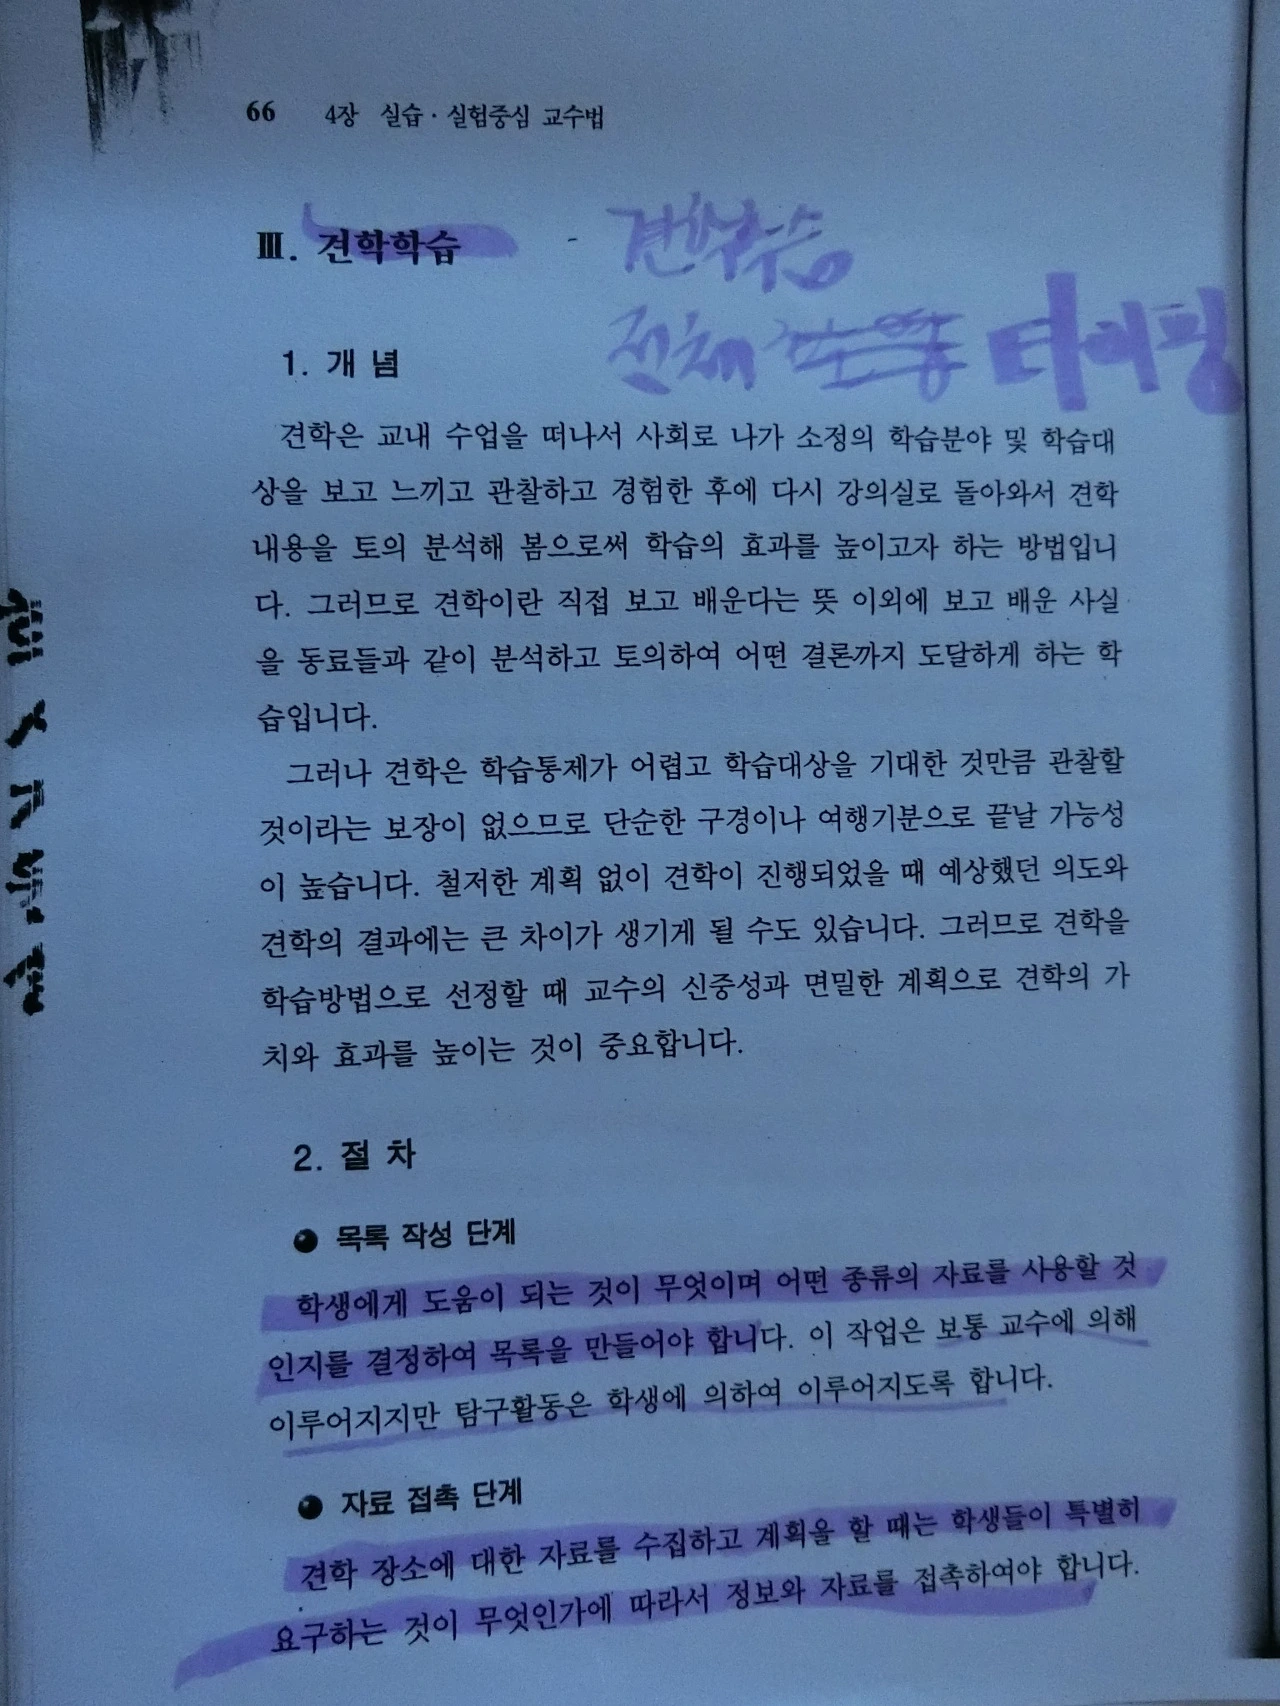 66 4장 실습·실험중심 교수법
Ⅲ. 견학학습 - 견학학습
전체 타이핑
1. 개 념
견학은 교내 수업을 떠나서 사회로 나가 소정의 학습분야 및 학습대
상을 보고 느끼고 관찰하고 경험한 후에 다시 강의실로 돌아와서 견학
내용을 토의 분석해 봄으로써 학습의 효과를 높이고자 하는 방법입니
다. 그러므로 견학이란 직접 보고 배운다는 뜻 이외에 보고 배운 사실
을 동료들과 같이 분석하고 토의하여 어떤 결론까지 도달하게 하는 학
습입니다.
그러나 견학은 학습통제가 어렵고 학습대상을 기대한 것만큼 관찰할
것이라는 보장이 없으므로 단순한 구경이나 여행기분으로 끝날 가능성
이 높습니다. 철저한 계획 없이 견학이 진행되었을 때 예상했던 의도와
견학의 결과에는 큰 차이가 생기게 될 수도 있습니다. 그러므로 견학을
학습방법으로 선정할 때 교수의 신중성과 면밀한 계획으로 견학의 가
치와 효과를 높이는 것이 중요합니다.
2. 절 차
● 목록 작성 단계
학생에게 도움이 되는 것이 무엇이며 어떤 종류의 자료를 사용할 것
인지를 결정하여 목록을 만들어야 합니다. 이 작업은 보통 교수에 의해
이루어지지만 탐구활동은 학생에 의하여 이루어지도록 합니다.
● 자료 접촉 단계
견학 장소에 대한 자료를 수집하고 계획을 할 때는 학생들이 특별히
요구하는 것이 무엇인가에 따라서 정보와 자료를 접촉하여야 합니다.